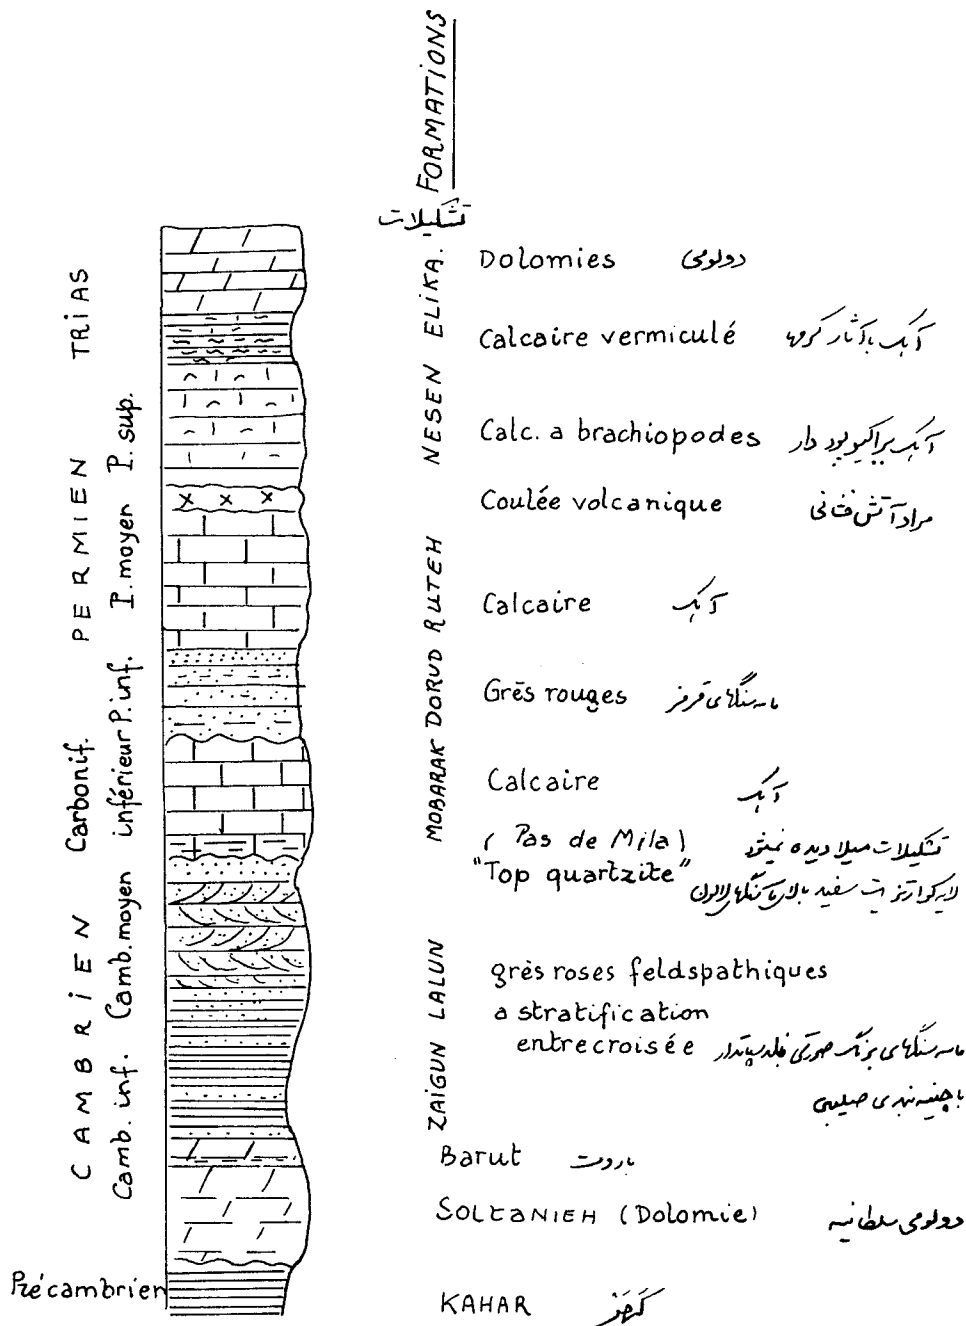 FORMATIONS
تشکیلات
TRIAS
PERMIEN
P. sup.
P. moyen
P. inf.
Carbonif.
inférieur
CAMBRIEN
Camb. moyen
Camb. inf.
Précambrien
ELIKA.
NESEN
RUTEH
DORUD
MOBARAK
LALUN
ZAIGUN
Dolomies دولومی
Calcaire vermiculé آهک با آثار کرمها
Calc. a brachiopodes آهک براکیوپود دار
Coulée volcanique مواد آتش فشانی
Calcaire آهک
Grès rouges ماسه سنگهای قرمز
Calcaire آهک
( Pas de Mila ) تشکیلات میلا دیده نمیشود
"Top quartzite" لایه کوارتزیت سفید بالای ماسه سنگهای لالون
grès roses feldspathiques
a stratification
entrecroisée ماسه سنگهای برنگ صورتی فلدسپاتدار
با چینه بندی صلیبی
Barut باروت
SOLTANIEH (Dolomie) دولومی سلطانیه
KAHAR کهر